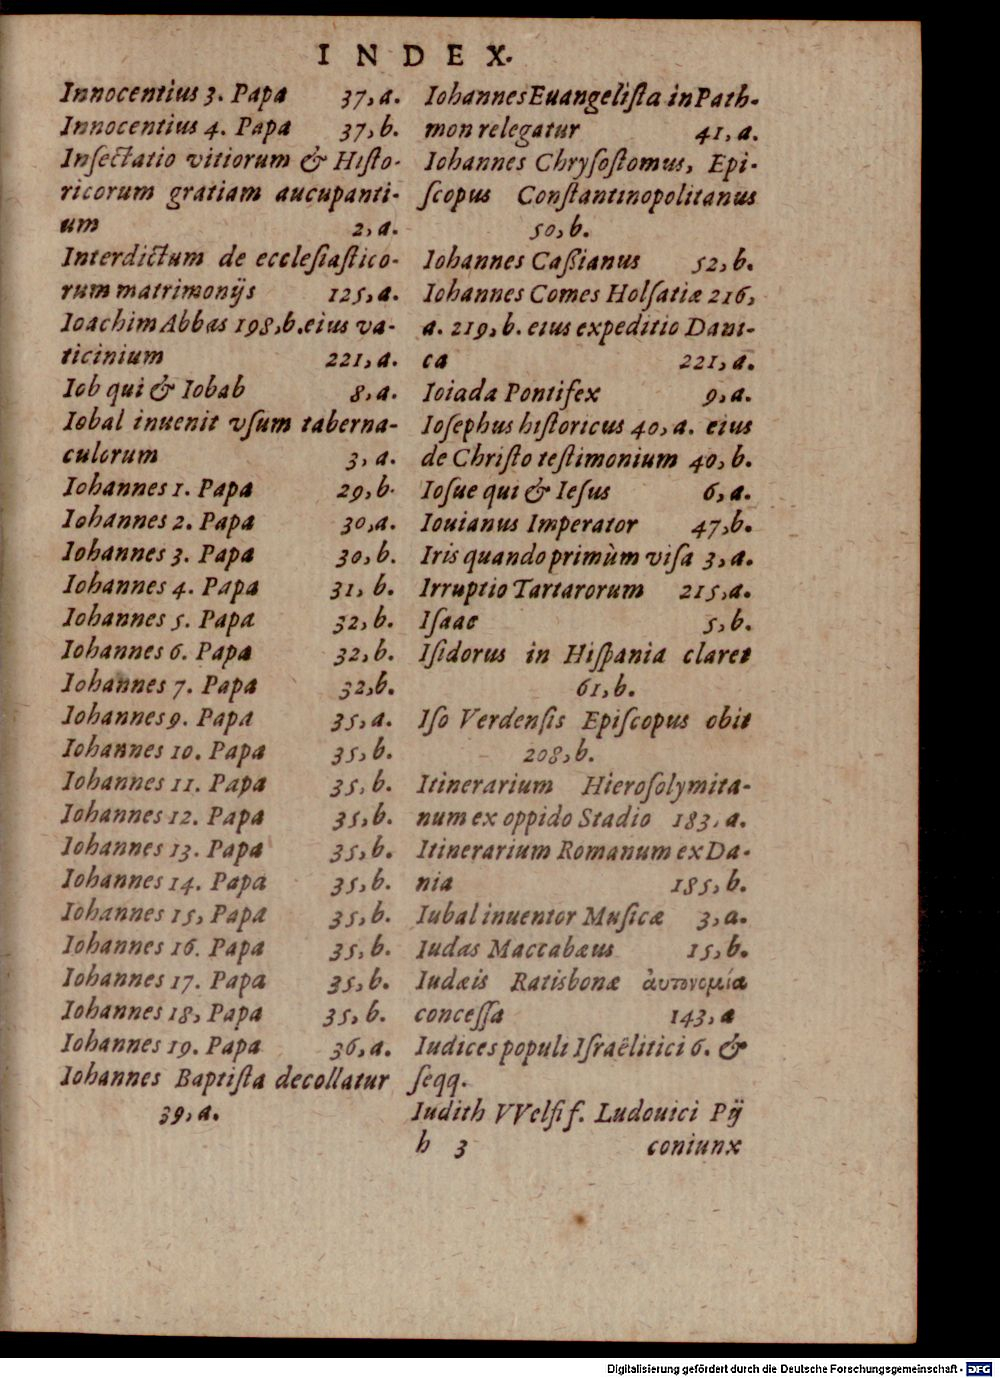 INDEX.
Innocentius 3. Papa 37, a.
Innocentius 4. Papa 37, b.
Inſectatio vitiorum & Hiſto-
ricorum gratiam aucupanti-
um 2, a.
Interdictum de eccleſiaſtico-
rum matrimonijs 125, a.
Ioachim Abbas 198, b. eius va-
ticinium 221, a.
Iob qui & Iobab 8, a.
Iobal inuenit vſum taberna-
culorum 3, a.
Iohannes 1. Papa 29, b.
Iohannes 2. Papa 30, a.
Iohannes 3. Papa 30, b.
Iohannes 4. Papa 31, b.
Iohannes 5. Papa 32, b.
Iohannes 6. Papa 32, b.
Iohannes 7. Papa 32, b.
Iohannes 9. Papa 35, a.
Iohannes 10. Papa 35, b.
Iohannes 11. Papa 35, b.
Iohannes 12. Papa 35, b.
Iohannes 13. Papa 35, b.
Iohannes 14. Papa 35, b.
Iohannes 15, Papa 35, b.
Iohannes 16. Papa 35, b.
Iohannes 17. Papa 35, b.
Iohannes 18, Papa 35, b.
Iohannes 19. Papa 36, a.
Iohannes Baptiſta decollatur
39, a.
Iohannes Euangeliſta in Path-
mon relegatur 41, a.
Iohannes Chryſoſtomus, Epi-
ſcopus Conſtantinopolitanus
50, b.
Iohannes Caßianus 52, b.
Iohannes Comes Holſatiæ 216,
a. 219, b. eius expeditio Dani-
ca 221, a.
Ioiada Pontifex 9, a.
Ioſephus hiſtoricus 40, a. eius
de Chriſto teſtimonium 40, b.
Ioſue qui & Ieſus 6, a.
Iouianus Imperator 47, b.
Iris quando primùm viſa 3, a.
Irruptio Tartarorum 215, a.
Iſaac 5, b.
Iſidorus in Hiſpania claret
61, b.
Iſo Verdenſis Epiſcopus obit
208, b.
Itinerarium Hieroſolymita-
num ex oppido Stadio 183, a.
Itinerarium Romanum ex Da-
nia 185, b.
Iubal inuentor Muſicæ 3, a.
Iudas Maccabæus 15, b.
Iudæis Ratisbonæ ἀυτονομία
conceſſa 143, a
Iudices populi Iſraëlitici 6. &
ſeqq.
Iudith VVelſi f. Ludouici Pij
h 3 coniunx
Digitalisierung gefördert durch die Deutsche Forschungsgemeinschaft - DFG